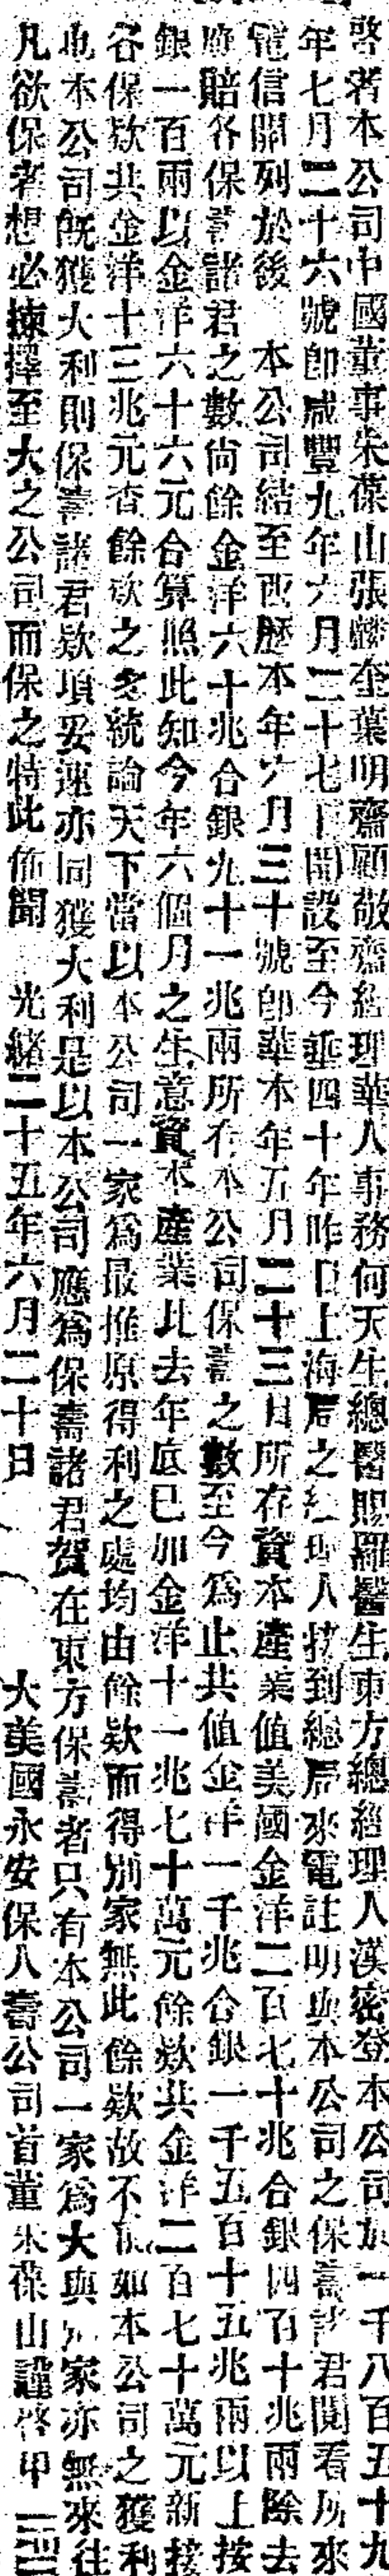 啓者本公司中國董事朱葆山張麟奎葉明齋顧敬齋經理華人事務何天生總醫賜羅醫生東方總經理人漢密登本公司於一千八百五十九
年七月二十六號卽咸豐九年六月二十七日開設至今垂四十年昨日上海局之經理人接到總局來電註明與本公司之保壽諸君閱看所來
電信開列於後　本公司結至西歷本年六月三十號卽華本年五月二十三日所存資本產業值美國金洋二百七十兆合銀四百十兆兩除去
應賠各保壽諸君之數尙餘金洋六十兆合銀九十一兆兩所存本公司保壽之數至今爲止共值金洋一千兆合銀一千五百十五兆兩以上按
銀一百兩以金洋六十六元合算照此知今年六個月之生意資本產業比去年底已加金洋十一兆七十萬元餘欵共金洋二百七十萬元新接
各保欵共金洋十三兆元查餘欵之多統論天下當以本公司一家爲最推原得利之處均由餘欵而得別家無此餘欵故不能如本公司之獲利
也本公司旣獲大利則保壽諸君欵項妥速亦同獲大利是以本公司應爲保壽諸君賀在東方保壽者只有本公司一家爲大與別家亦無來往
凡欲保者想必揀擇至大之公司而保之特此佈聞　光緒二十五年六月二十日　大美國永安保人壽公司首董朱葆山謹啓甲